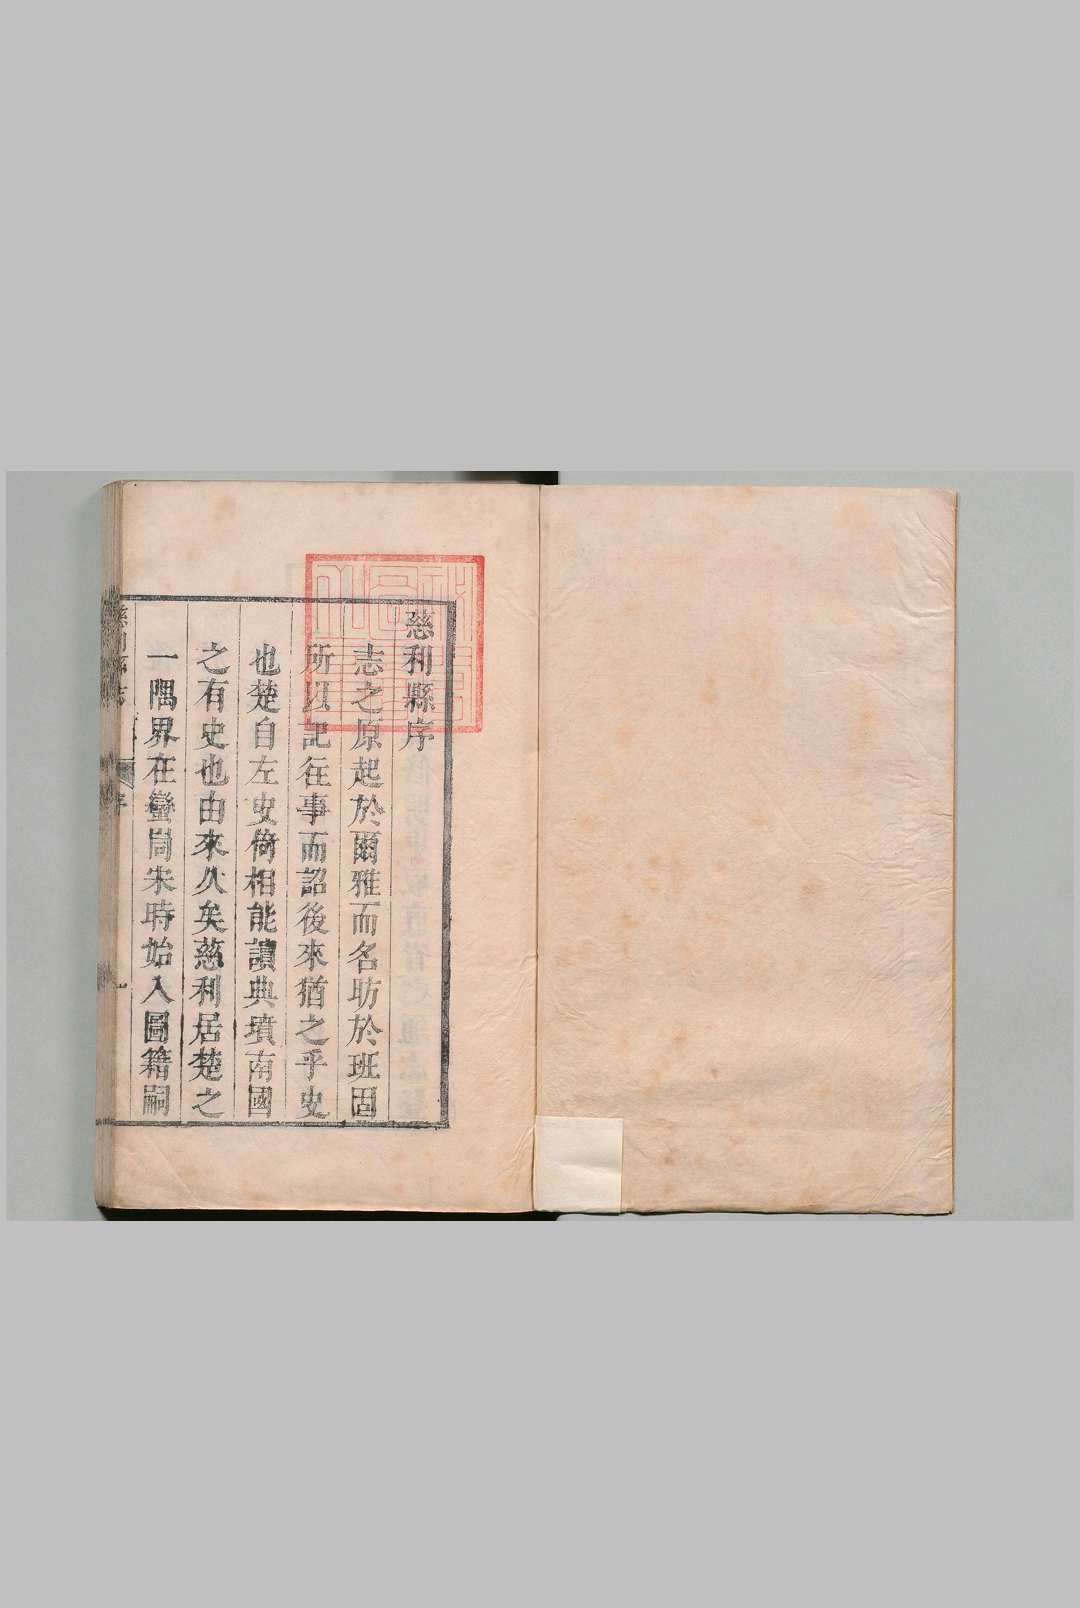 慈利縣序
志之原起於爾雅而名昉於班固
所以記往事而詔後來猶之乎史
也楚自左史倚相能讀典墳南國
之有史也由來久矣慈利居楚之
一隅界在蠻峒宋時始入圖籍嗣
慈利縣志
序